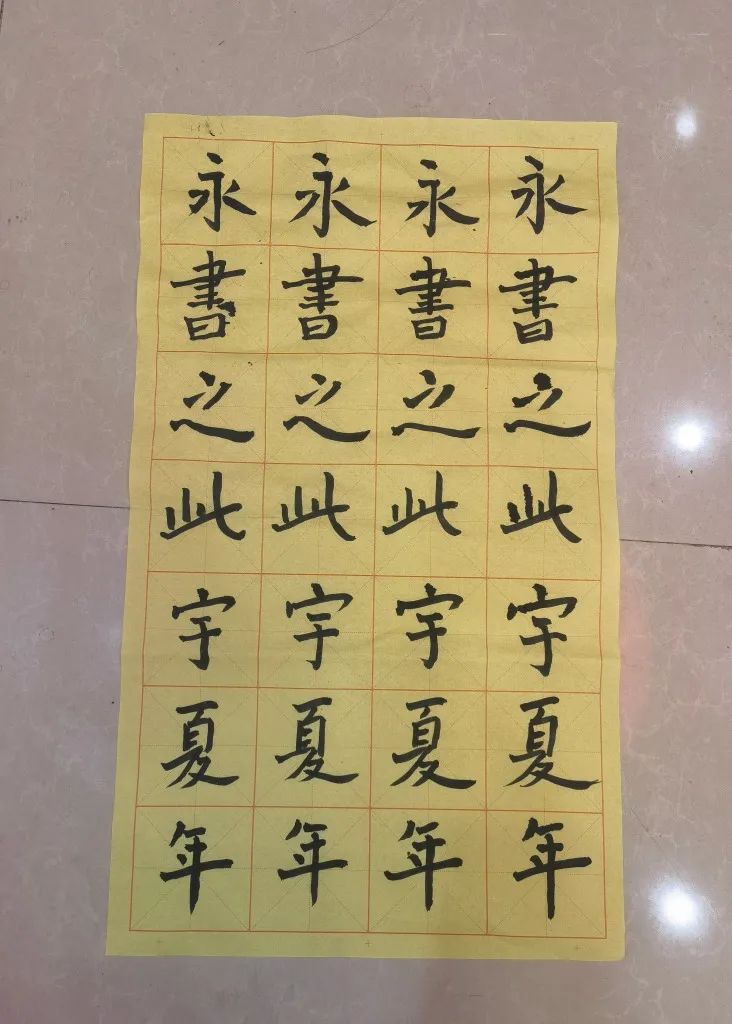 永永永永
書書書書
之之之之
此此此此
宇宇宇宇
夏夏夏夏
年年年年